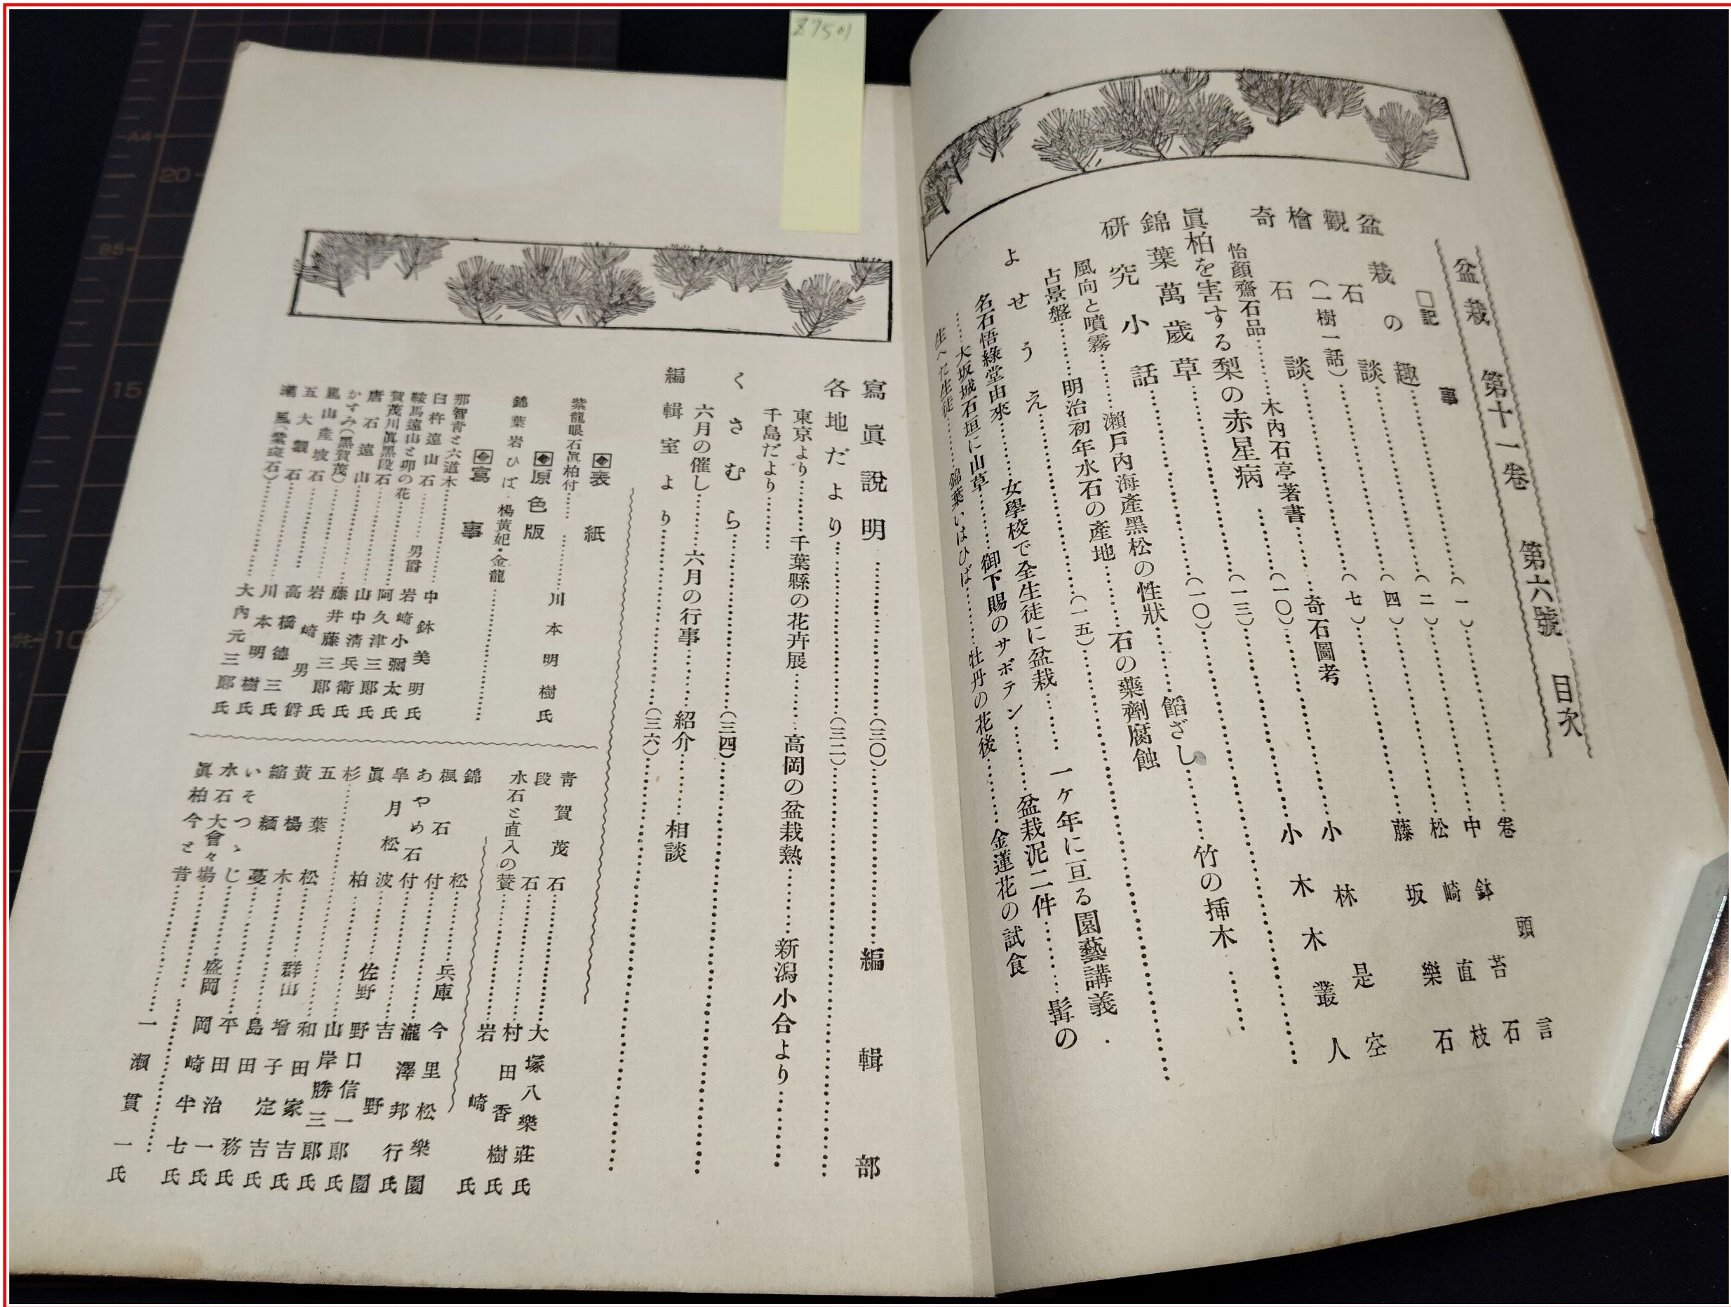 盆栽 第十一卷 第六號 目次
□記事
盆栽の趣……(一)……卷頭言
觀石談……(二)……中鉢苔石
檜(一樹一話)……(四)……松崎直枝
奇石談……(七)……藤坂樂石
怡顔齋石品……木內石亭著書……奇石圖考
眞柏を害する梨の赤星病……(一〇)……小林是空
錦葉萬歲草……(一三)……小木木叢人
研究小話……(一〇)
風向と噴霧……瀨戶內海產黑松の性狀……餡ざし……竹の揷木……
占景盤……明治初年水石の產地……石の藥劑腐蝕
よせうえ……(一五)
名石悟綠堂由來……女學校で全生徒に盆栽……一ケ年に亘る園藝講義
……大坂城石垣に山草……御下賜のサボテン……盆栽泥二件……髯の
生へた生徒……錦葉いはひば……牡丹の花後……金蓮花の試食
寫眞說明……(三〇)……編輯部
各地だより……(三二)
東京より……千葉縣の花卉展……高岡の盆栽熱……新潟小合より……
千島だより……
くさむら……(三四)
六月の催し……六月の行事……紹介……相談
編輯室より……(三六)
表紙
紫龍眼石眞柏付……川本明樹氏
原色版
錦葉岩ひば・楊黃妃・金龍……
寫事
那智靑と六道木……中鉢美明氏
臼杵遠山石……男爵 岩崎小彌太氏
鞍馬遠山と卯の花……阿久津三郎氏
賀茂川眞黑段石……山中淸兵衛氏
唐石遠山……藤井藤三郎氏
かすみ(黑賀茂)……岩崎男爵
嵐山産坡石……高橋德三氏
五大瀨石……川本明樹氏
潮風(棠斑石)……大內元三郎氏
靑賀茂石……大塚八樂莊氏
段石……村田香樹氏
水石と直入の賛……岩崎氏
錦松……兵庫 今里松樂園
楓石付……瀧澤邦行氏
あやめ石付……吉野園
皐月松波……佐野 野口信一郎氏
眞柏……山岸勝三郎氏
杉……和田家吉氏
五葉松……群山 增子定吉氏
黃楊木……島田務氏
縮緬蔓……平田治一氏
いそつゝじ……盛岡 岡崎半七氏
水石大會々場
眞柏今と昔……一瀨貫一氏